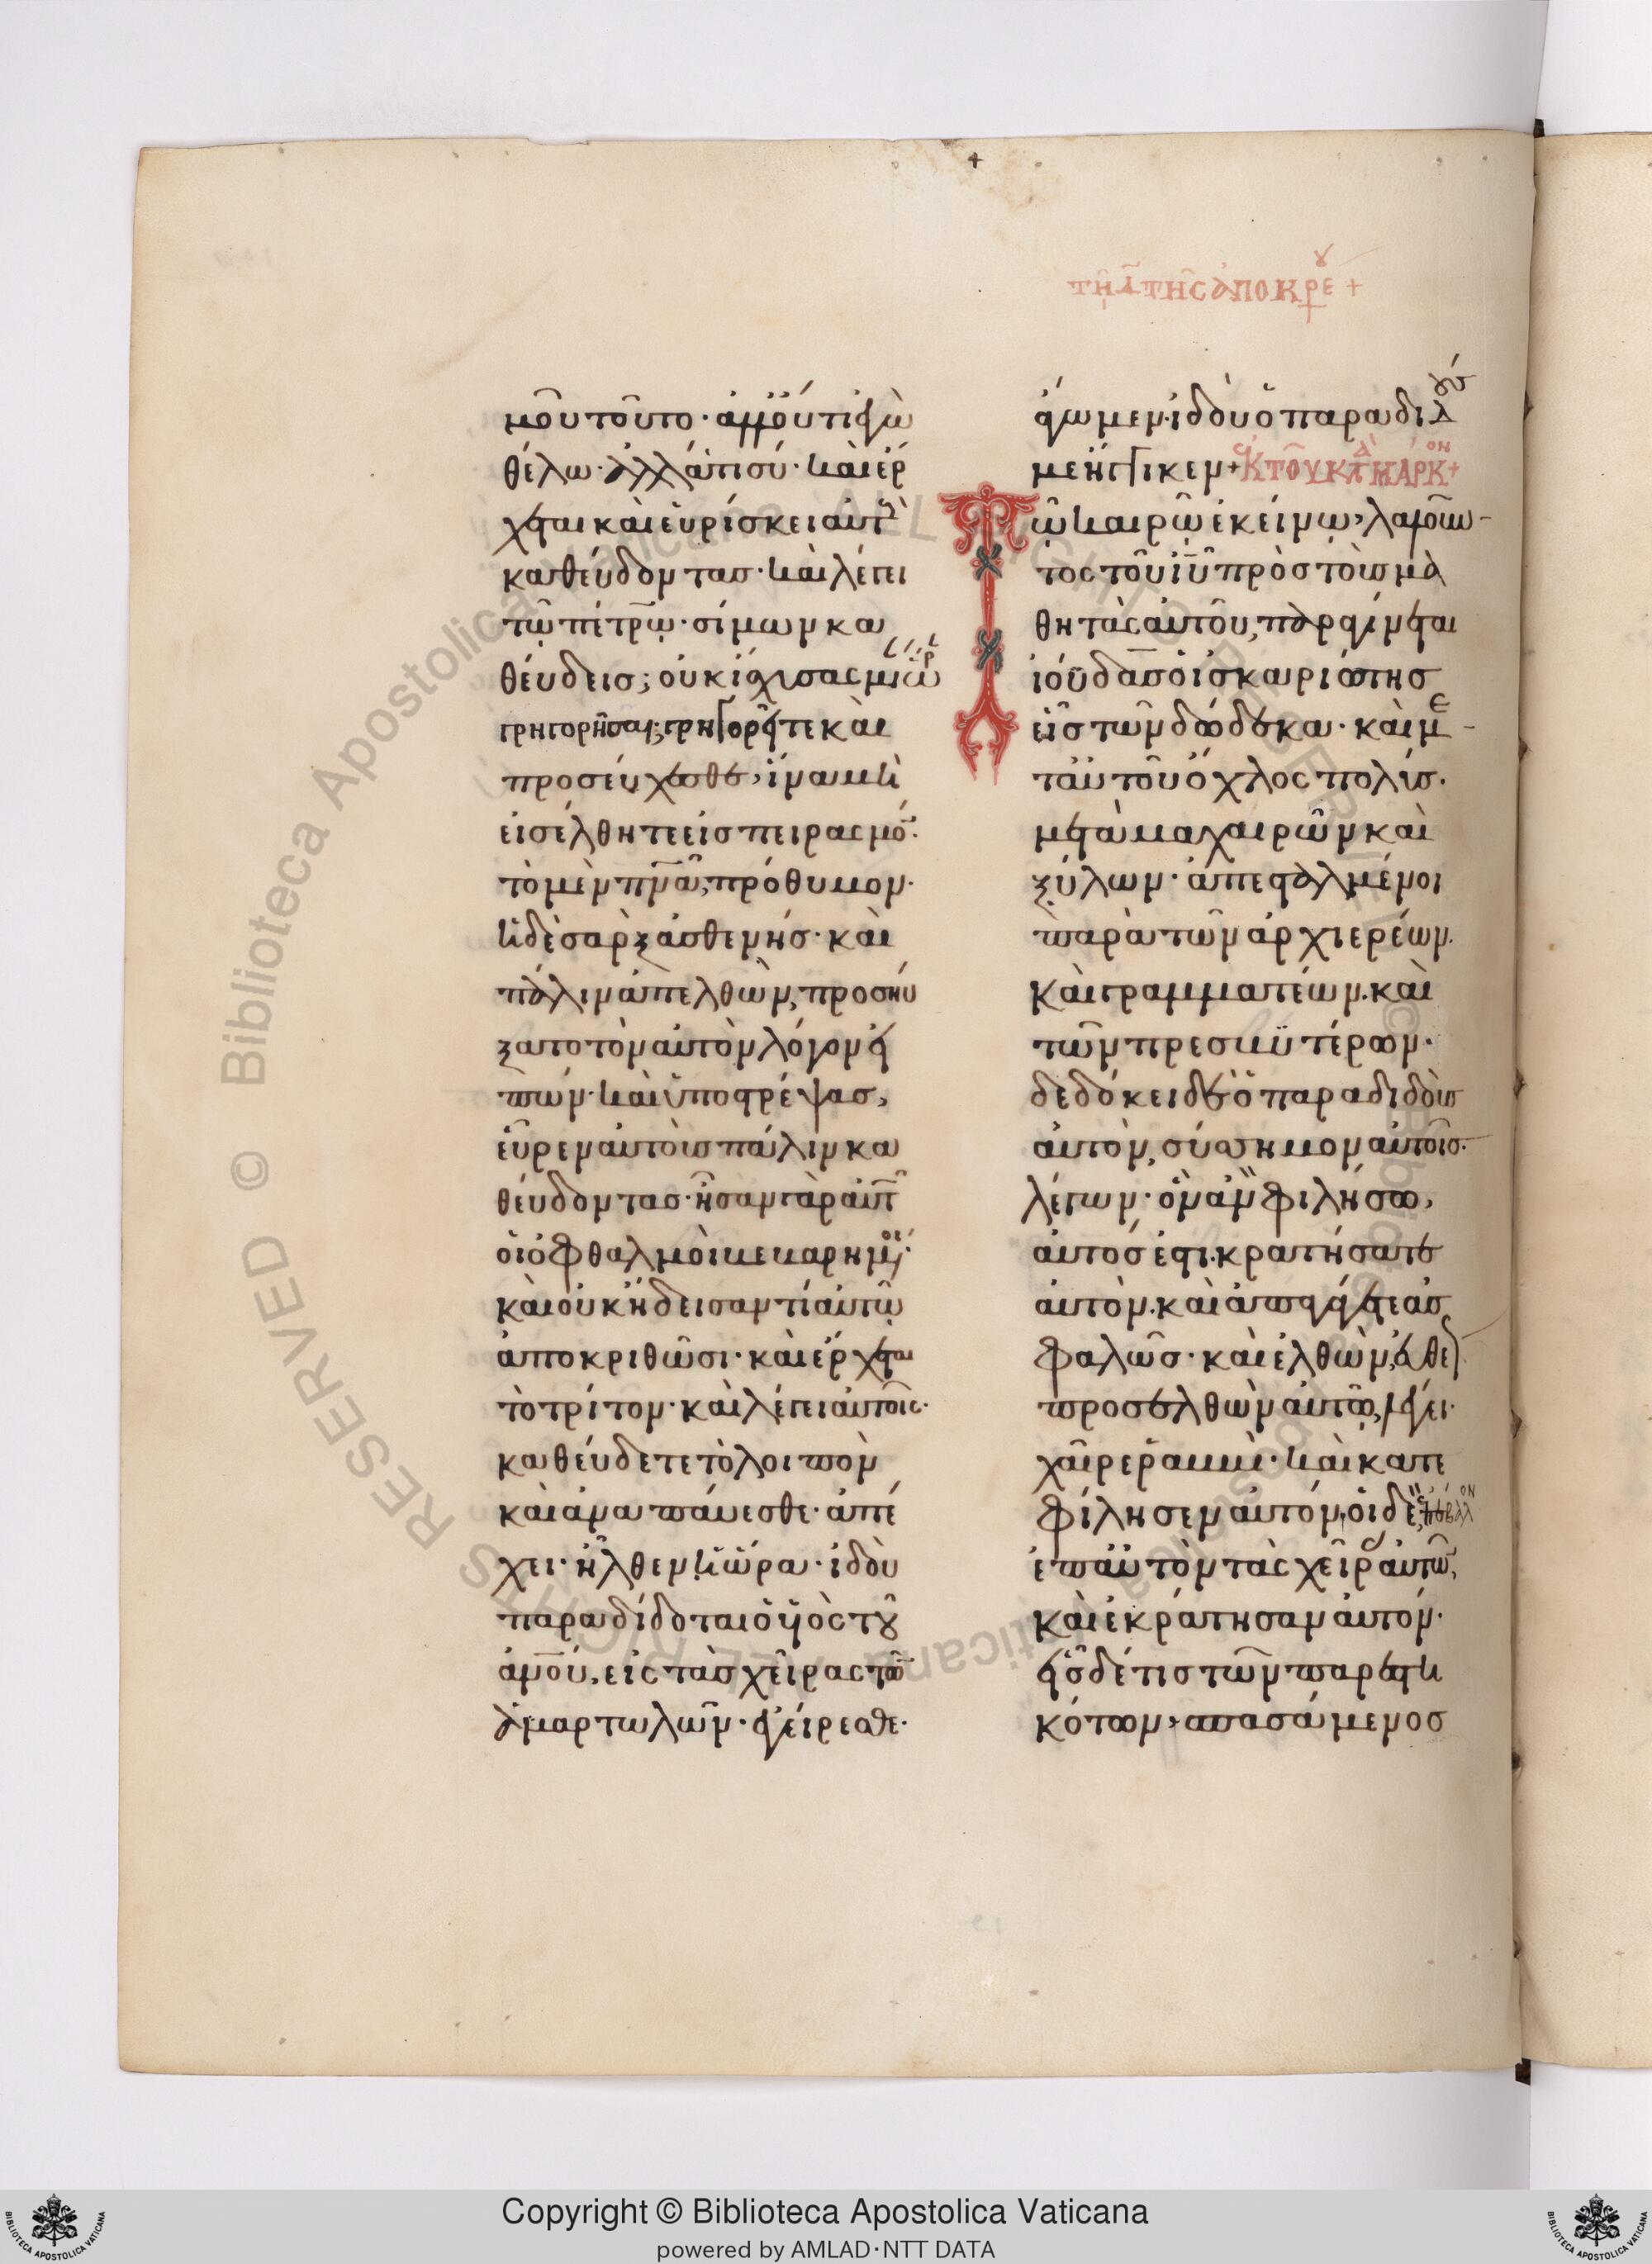 τῆ γ τῆς ἀποκρε +
μοῦ τοῦτο · ἀλλ' οὐ τί ἐγὼ
θέλω · ἀλλά τι σύ · καὶ ἔρ
χεται καὶ εὑρίσκει αὐτοὺς
καθεύδοντας · καὶ λέγει
τῷ πέτρῳ · σίμων κα
θεύδεις; οὐκ ἴσχυσας μίαν ὥραν
γρηγορῆσαι; γρηγορεῖτε καὶ
προσεύχεσθε, ἵνα μὴ
εἰσέλθητε εἰς πειρασμόν.
τὸ μὲν πνα, πρόθυμον.
ἡ δὲ σὰρξ ἀσθενής · καὶ
πάλιν ἀπελθὼν, προσηύ
ξατο τὸν αὐτὸν λόγον εἰ
πών · καὶ ὑποστρέψας,
εὗρεν αὐτοὺς πάλιν κα
θεύδοντας · ἦσαν γὰρ αὐτῶν
οἱ ὀφθαλμοὶ βεβαρημένοι·
καὶ οὐκ ᾔδεισαν τί αὐτῷ
ἀποκριθῶσι · καὶ ἔρχεται
τὸ τρίτον · καὶ λέγει αὐτοῖς·
καθεύδετε τὸ λοιπὸν
καὶ ἀναπαύεσθε · ἀπέ
χει · ἦλθεν ἡ ὥρα · ἰδοὺ
παραδίδοται ὁ υἱὸς τοῦ
ἀνου, εἰς τὰς χεῖρας τῶν
ἁμαρτωλῶν · ἐγείρεσθε·
ἄγωμεν · ἰδοὺ ὁ παραδιδούς
με ἤγγικεν + ἐκ τοῦ κατὰ μάρκον +
Τῷ καιρῷ ἐκείνῳ, λαλοῦν
τος τοῦ ιυ πρὸς τοὺς μα
θητὰς αὐτοῦ, παραγίνεται
ἰούδας ὁ ἰσκαριώτης
εἷς τῶν δώδεκα · καὶ με
τ' αὐτοῦ ὄχλος πολύς.
μετὰ μαχαιρῶν καὶ
ξύλων · ἀπεσταλμένοι
παρὰ τῶν ἀρχιερέων.
καὶ γραμματέων. καὶ
τῶν πρεσβυτέρων.
δεδώκει δὲ ὁ παραδιδοὺς
αὐτὸν, σύσσημον αὐτοῖς.
λέγων · ὃν ἂν φιλήσω,
αὐτός ἐστι. κρατήσατε
αὐτὸν. καὶ ἀπαγάγετε ἀσ
φαλῶς · καὶ ἐλθὼν, εὐθέως
προσελθὼν αὐτῷ, λέγει·
χαῖρε ῥαββί · καὶ κατε
φίλησεν αὐτόν. οἱ δὲ ἐπέβαλον
ἐπ' αὐτὸν τὰς χεῖρας αὐτῶν,
καὶ ἐκράτησαν αὐτόν.
εἷς δέ τις τῶν παρεστη
κότων, σπασάμενος
Copyright © Biblioteca Apostolica Vaticana
powered by AMLAD·NTT DATA